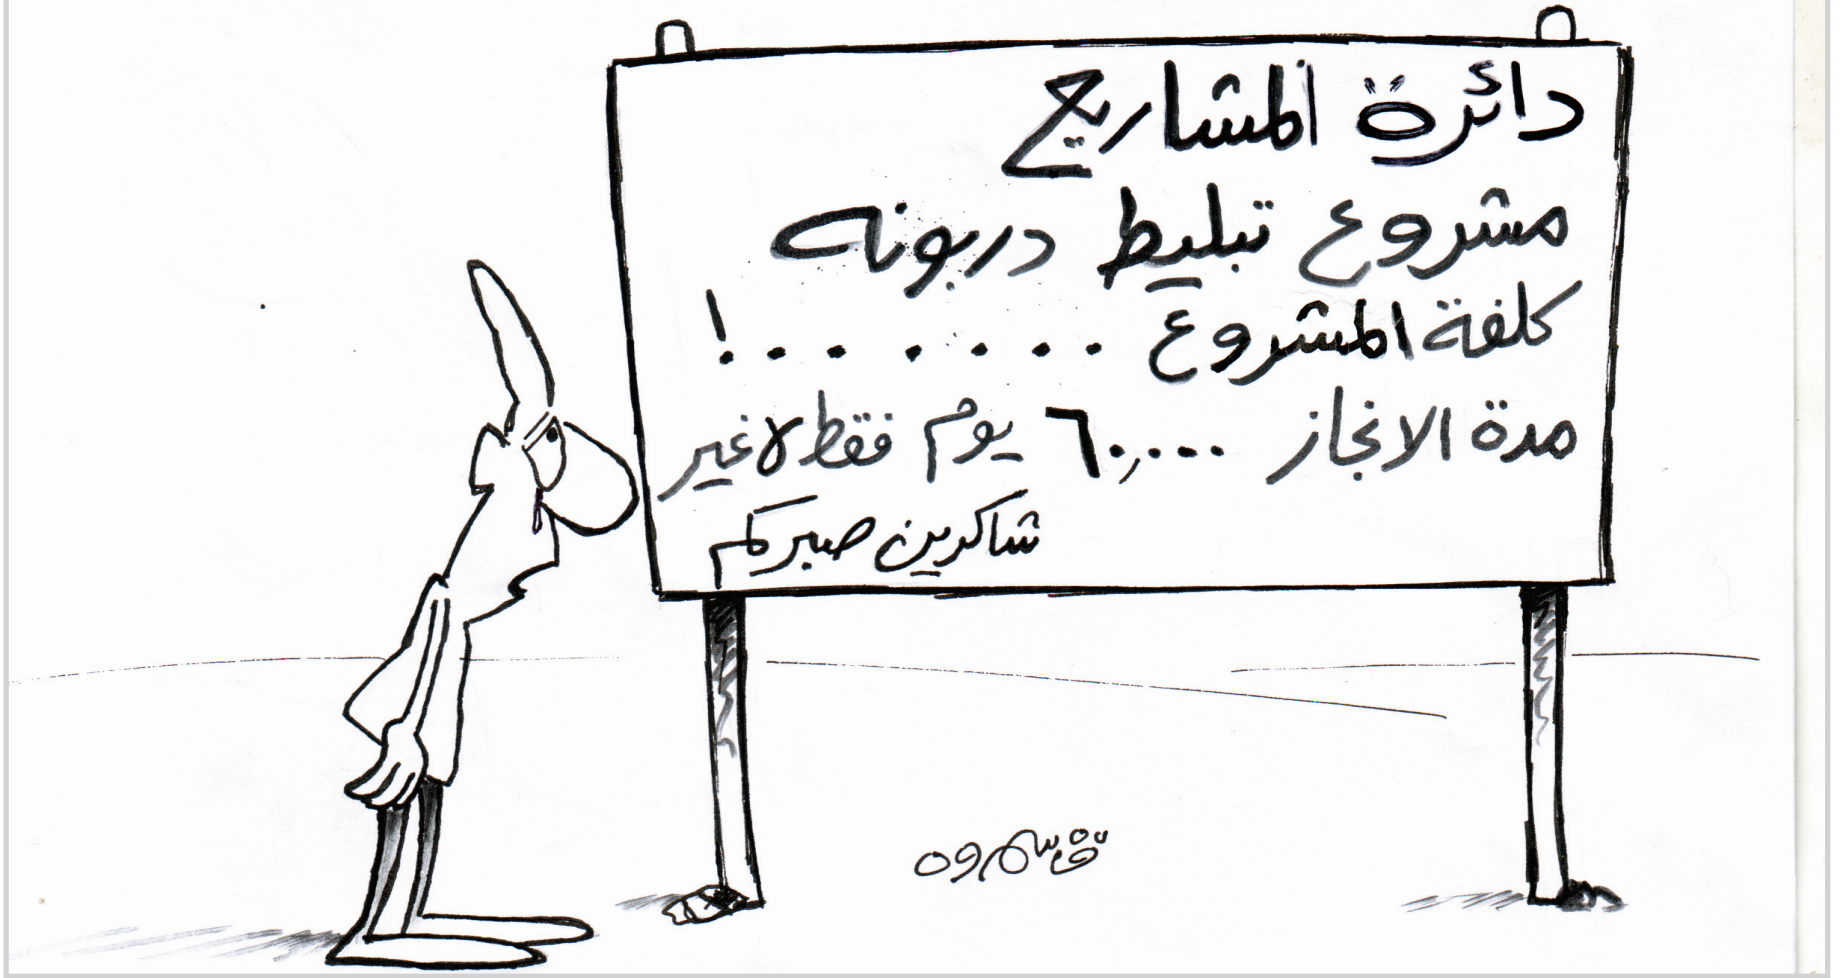 دائرة المشاريع
مشروع تبليط دربونه
كلفة المشروع . . . . . . . !
مدة الانجاز ٦٠,٠٠٠٠ يوم فقط لاغير
شاكرين صبركم